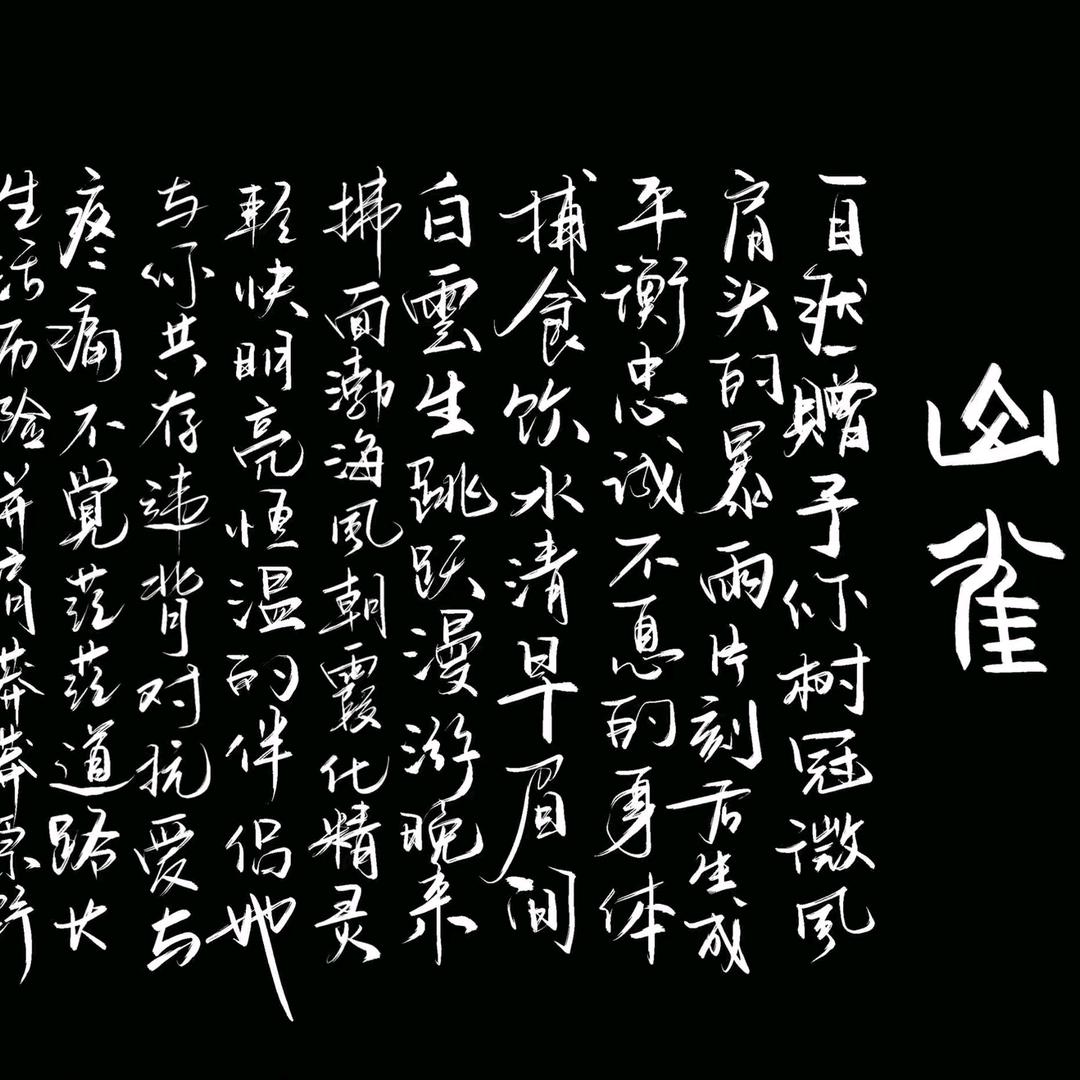 山雀
自然赠予你树冠微風
肩头的暴雨片刻后生成
平衡忠诚不息的身体
捕食饮水清早眉间
白雲生跳跃漫游晚来
拂面渤海風朝霞化精灵
輕快明亮恒温的伴侣她
与你共存违背对抗爱与
疼痛不覺茫茫道路长
生活历险并肩莽莽原野